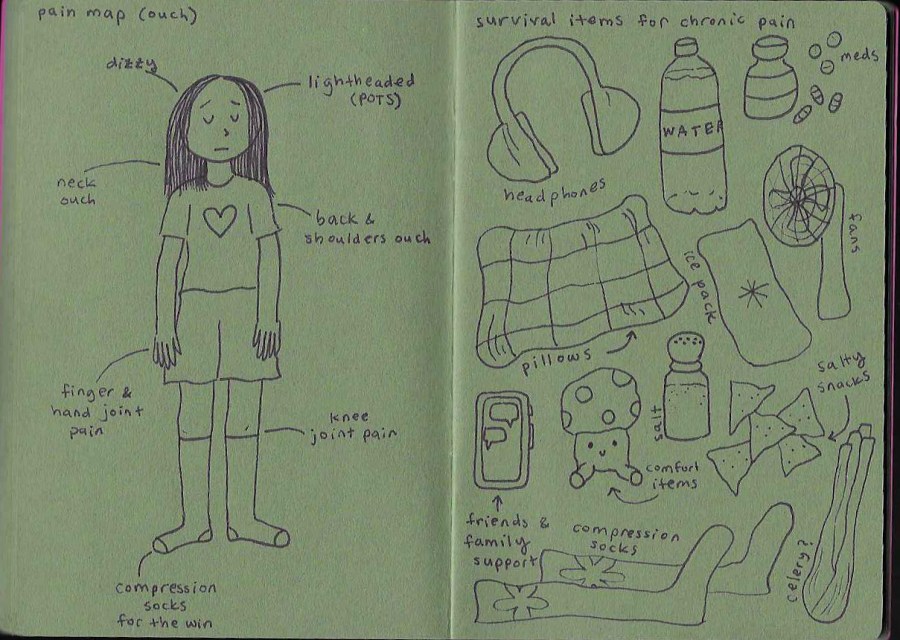 pain map (ouch)
dizzy
lightheaded
(POTS)
neck
ouch
back &
shoulders ouch
finger &
hand joint
pain
knee
joint pain
compression
socks
for the win
survival items for chronic pain
headphones
WATER
meds
fans
ice pack
pillows
salt
salty
snacks
comfort
items
friends &
family
support
compression
socks
celery?